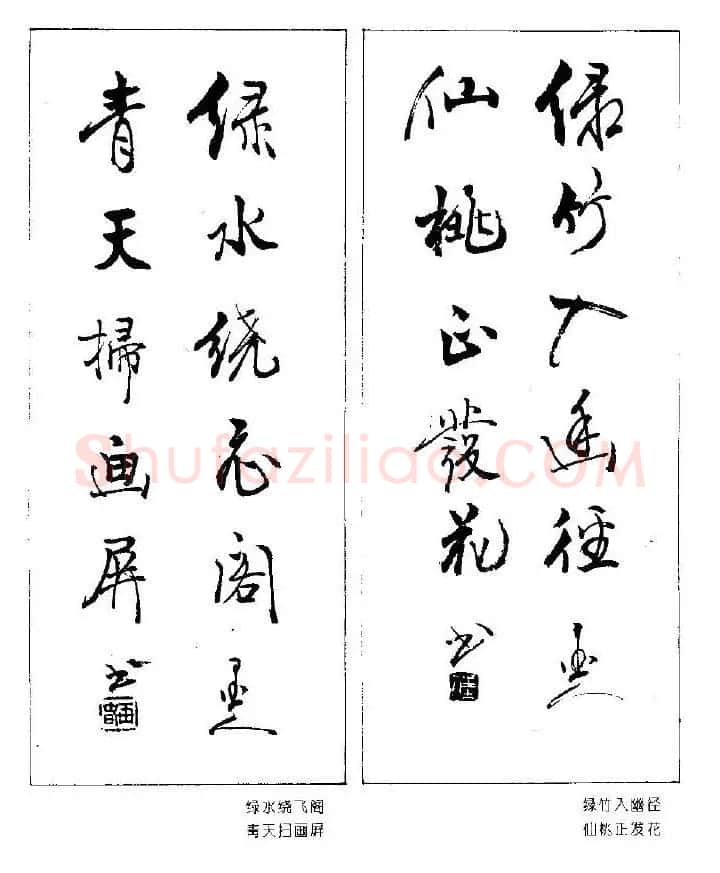 绿竹入幽徑
仙桃正發花 书
绿水绕飞阁
青天掃画屏 书
绿竹入幽径
仙桃正发花
绿水绕飞阁
青天扫画屏
Shufaziliao.COM